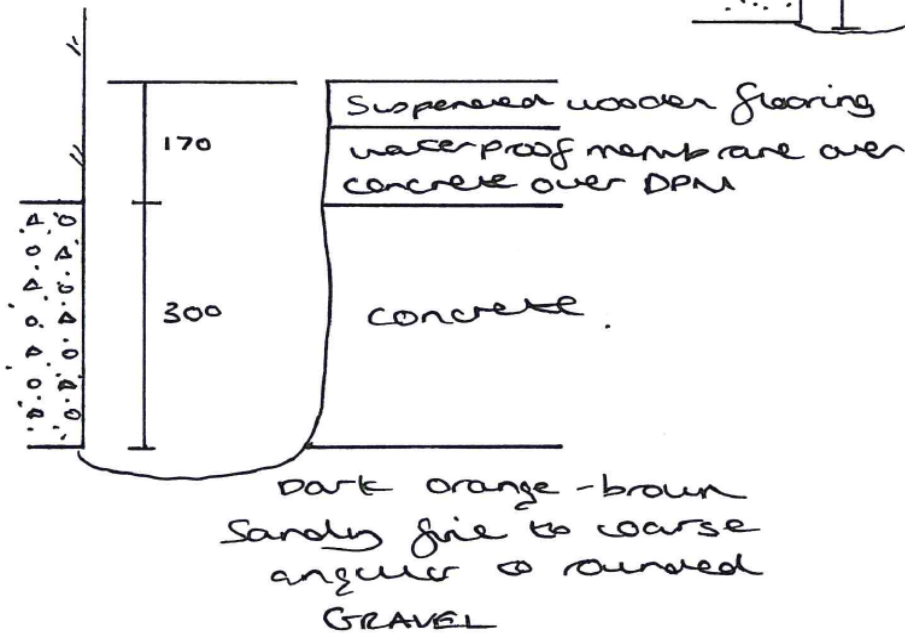 Suspended wooden flooring
170
waterproof membrane over
concrete over DPM
300
concrete.
Dark orange-brown
Sandy fine to coarse
angular to rounded
GRAVEL